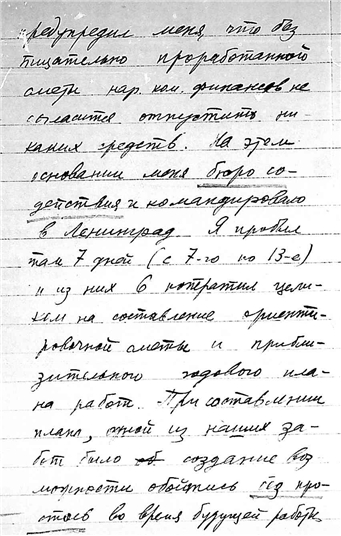 предупредил меня, что без
тщательно проработанной
сметы нар. ком. финансов не
согласится отпустить ни-
каких средств. На этом
основании меня бюро со-
действия и командировало
в Ленинград. Я пробыл
там 7 дней (с 7-го по 13-е)
и из них 6 потратил цели-
ком на составление ориенти-
ровочной сметы и прибли-
зительного годового пла-
на работ. При составлении
плана, одной из наших за-
бот было создание воз
можности обойтись без про-
стоев во время будущей работы